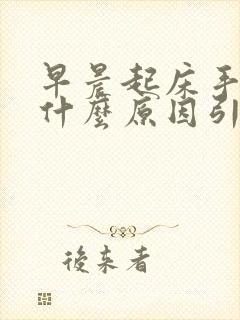 早晨起床手
什麼原因引
後來者